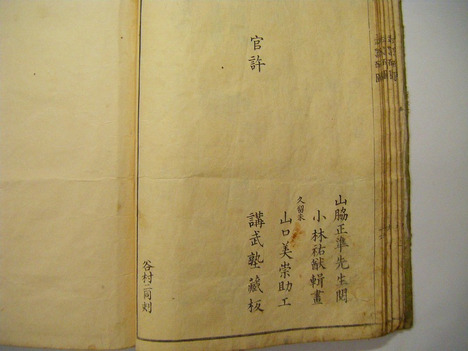 官許
山脇正準先生閲
小林祐猷輯畫
久留米
山口美崇助工
講武塾藏板
谷村一同刻